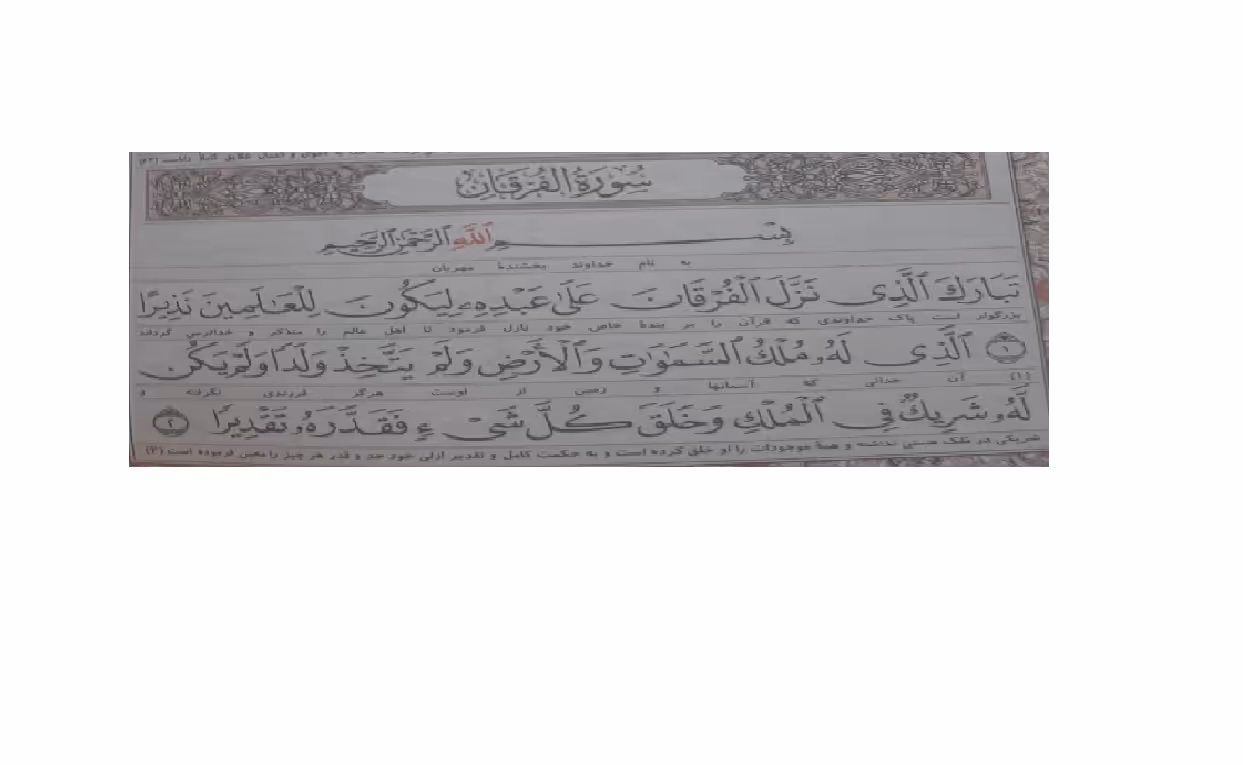 سُورَةُ الفُرْقَانِ
بِسْمِ ٱللَّهِ ٱلرَّحْمَٰنِ ٱلرَّحِيمِ
به نام خداوند بخشندهٔ مهربان
تَبَارَكَ ٱلَّذِى نَزَّلَ ٱلْفُرْقَانَ عَلَىٰ عَبْدِهِۦ لِيَكُونَ لِلْعَـٰلَمِينَ نَذِيرًا
بزرگوار است پاک خداوندی که قرآن را بر بندهٔ خاص خود نازل فرمود تا اهل عالم را متذکر و خداترس گرداند
﴿١﴾ ٱلَّذِى لَهُۥ مُلْكُ ٱلسَّمَـٰوَٰتِ وَٱلْأَرْضِ وَلَمْ يَتَّخِذْ وَلَدًا وَلَمْ يَكُن
(۱) آن خدائی که آسمانها و زمین از اوست هرگز فرزندی نگرفته و
لَّهُۥ شَرِيكٌ فِى ٱلْمُلْكِ وَخَلَقَ كُلَّ شَىْءٍ فَقَدَّرَهُۥ تَقْدِيرًا ﴿٢﴾
شریکی در ملک هستی نداشته و همهٔ موجودات را او خلق کرده است و به حکمت کامل و تقدیر ازلی خود حد و قدر هر چیز را معین فرموده است (۲)